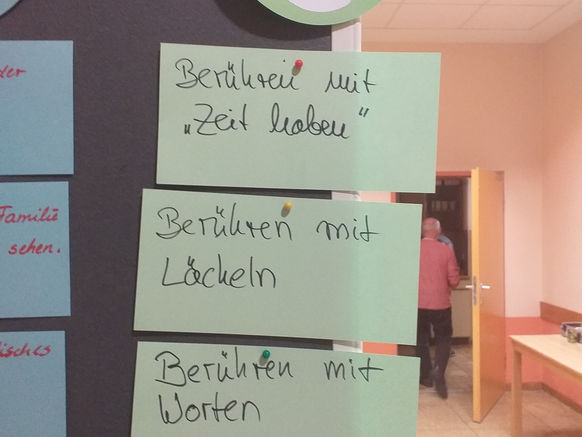 der
Familie
sehen.
isches
Berühren mit
„Zeit haben“
Berühren mit
Lächeln
Berühren mit
Worten